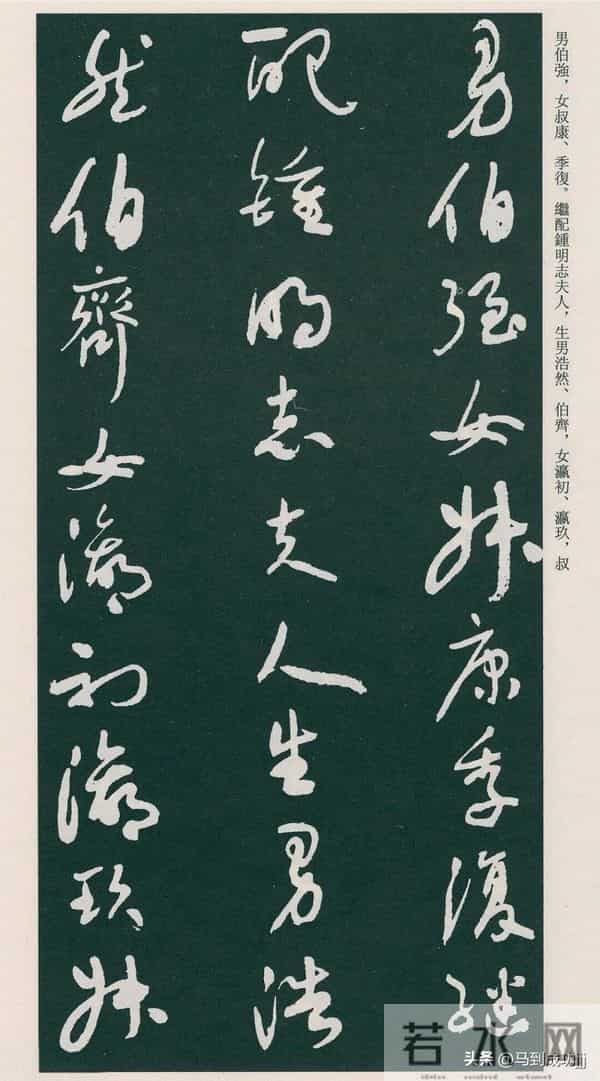 男伯強，女叔康、季復。繼配鍾明志夫人，生男浩然、伯齊，女瀛初、瀛玖，叔
男伯强女叔康季復繼
配鍾明志夫人生男浩
然伯齊女瀛初瀛玖叔
若水网
头条 @马到成功jjj